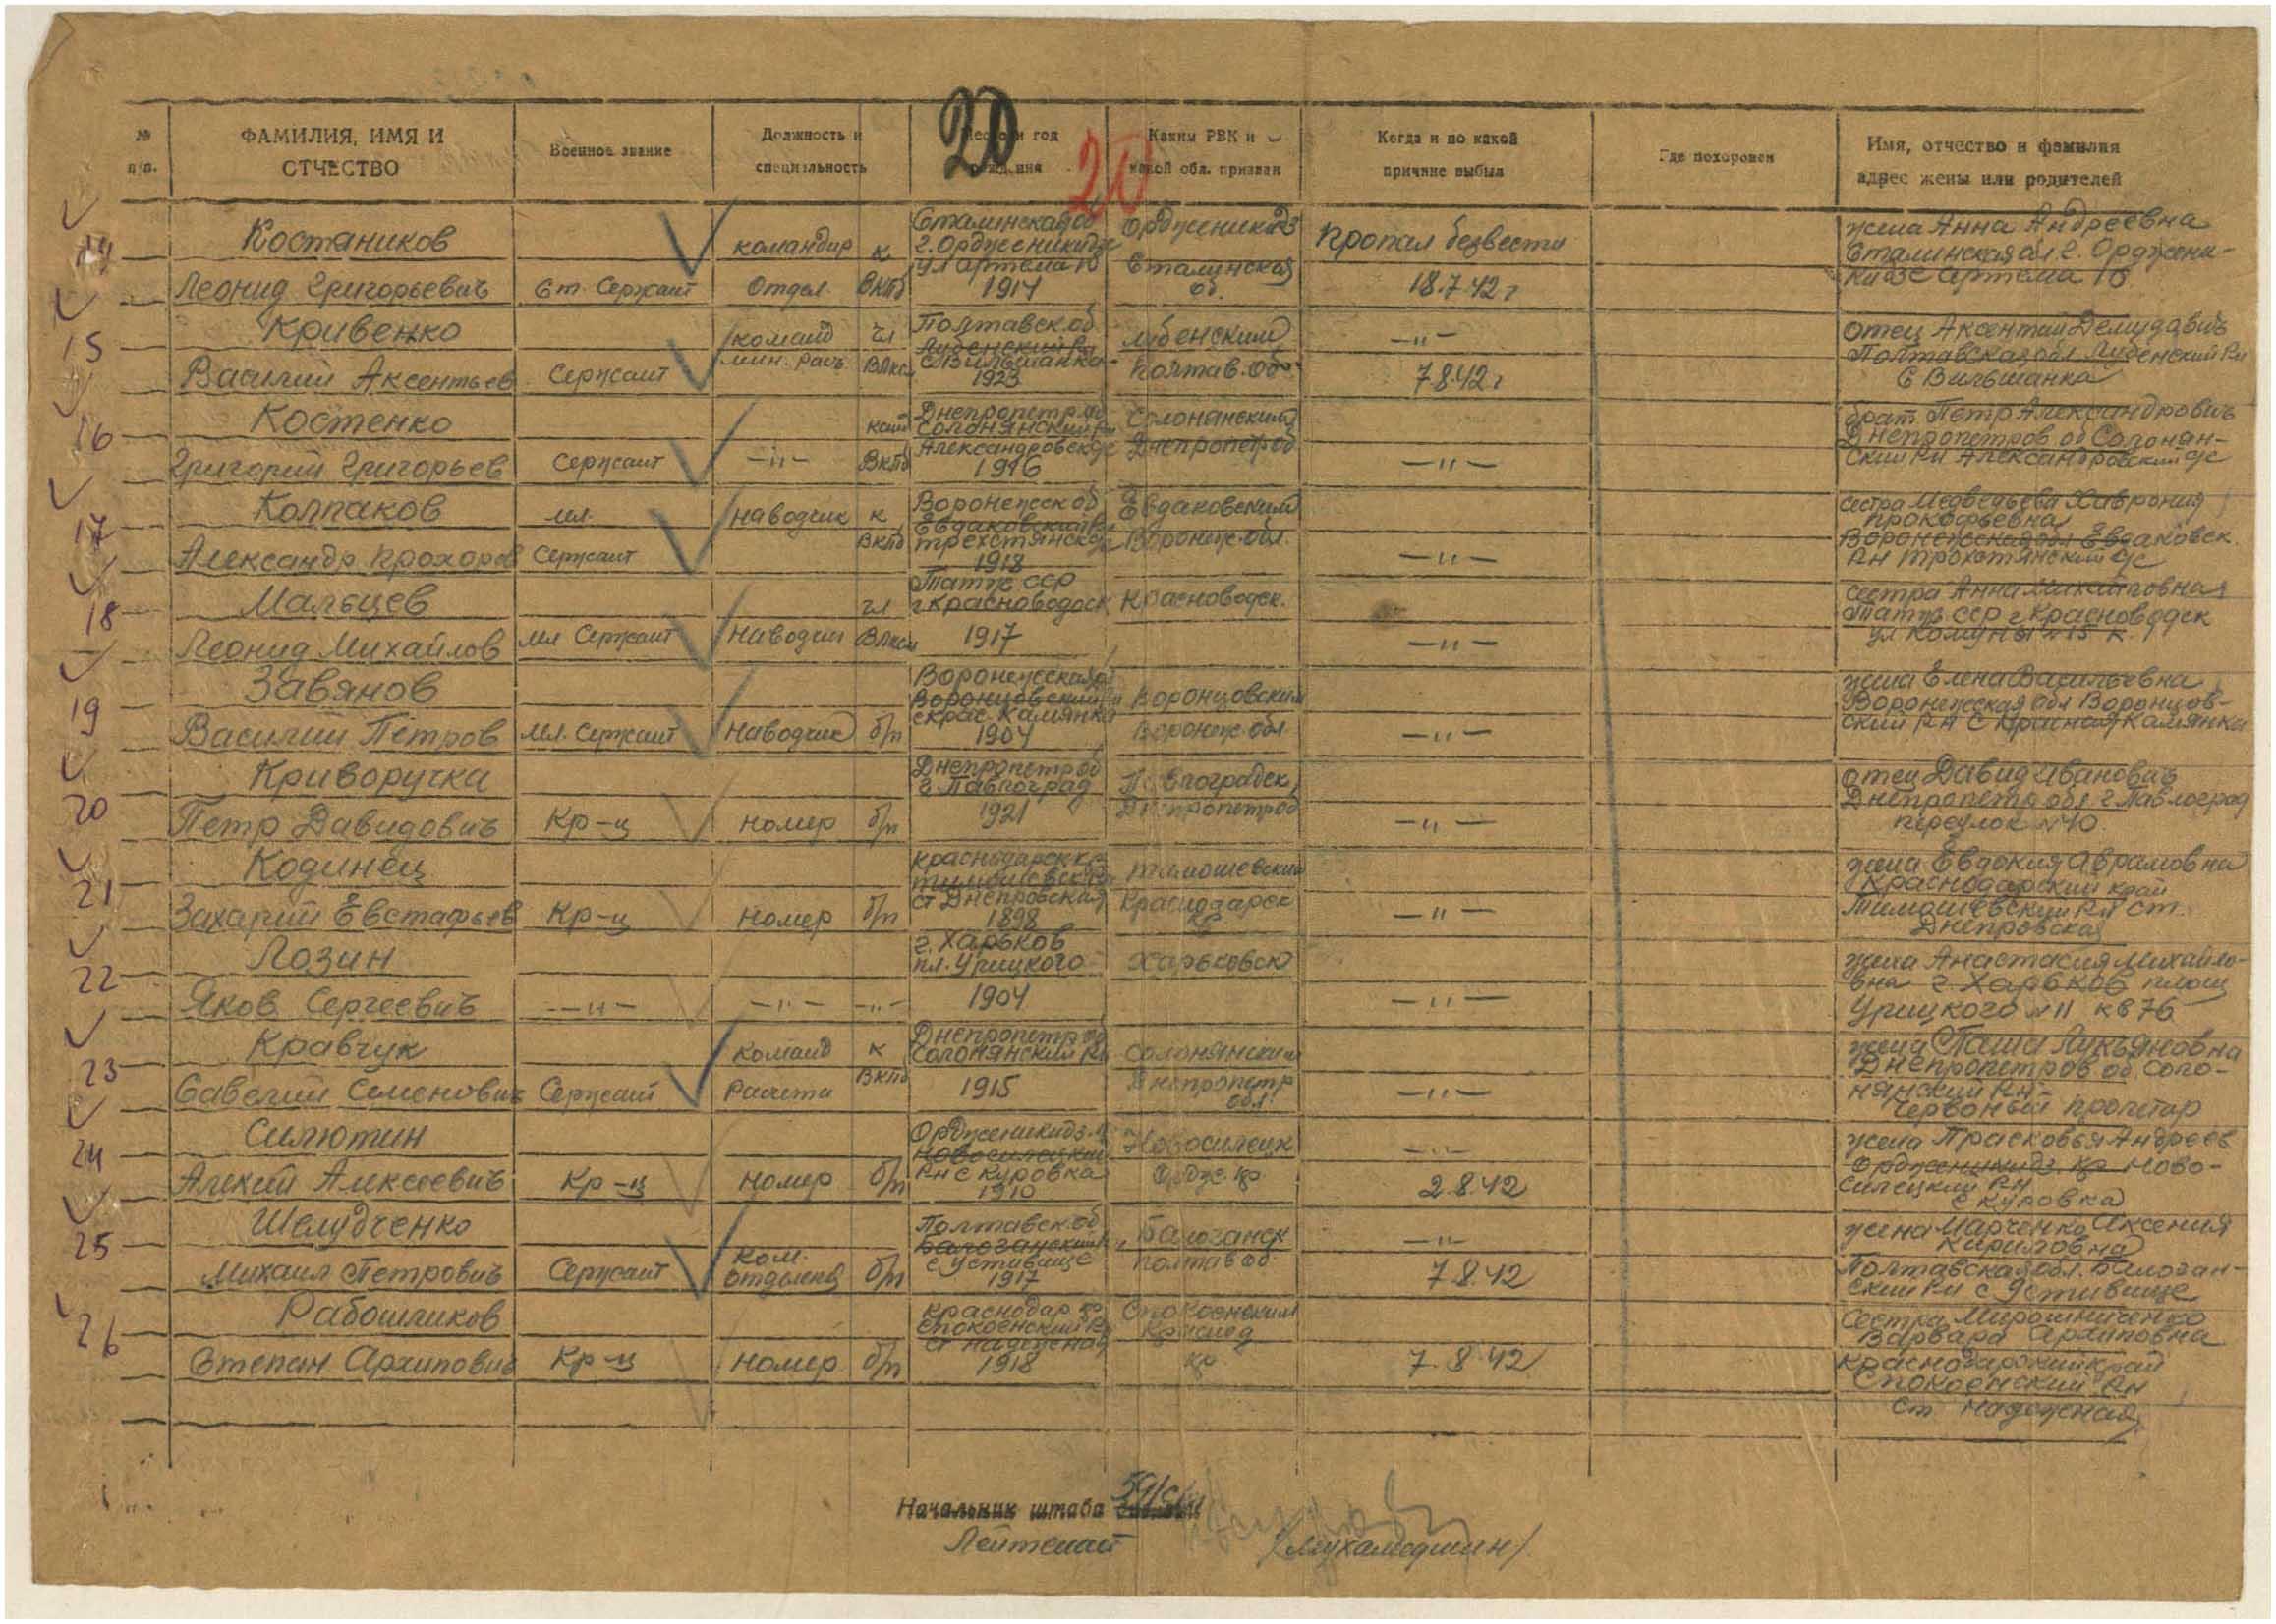 20
20
№ п/п.
ФАМИЛИЯ, ИМЯ И ОТЧЕСТВО
Военное звание
Должность и специальность
год
Каким РВК и какой обл. призван
Когда и по какой причине выбыл
Где похоронен
Имя, отчество и фамилия адрес жены или родителей
14
Костаников
Леонид Григорьевич
Ст. Сержант
командир
Отдел.
к
ВКПб
Сталинская об
г. Орджоникидзе
ул Артема 10
1914
Орджоникидз
Сталинская
об.
Пропал безвести
18.7.42 г
жена Анна Андреевна
Сталинская обл г. Орджони-
кидзе Артема 10
15
Кривенко
Василий Аксентьев
Сержант
команд
мин. расч
чл
ВЛКСМ
Полтавск. об
Лубенский Рн
с Вильшанка
1923
Лубенским
Полтав. об.
—"—
7 8.42 г
Отец Аксентий Демидович
Полтавская обл Лубенский Рн
С Вильшанка
16
Костенко
Григорий Григорьев
Сержант
—"—
канд
ВКПб
Днепропетр об
Солонянский Рн
Александровск с/с
1916
Солонянским
Днепропетр об
—"—
брат Петр Александрович
Днепропетров об Солонян-
ский Рн Александровский с/с
17
Колпаков
Александр Прохоров
мл.
Сержант
наводчик
к
ВКПб
Воронежск об
Евдаковский Рн
1918
Евдаковским
Воронеж. обл.
—"—
сестра Медведьева Хаврония
Прокофьевна
Воронежская обл Евдаковск.
Рн Трохстянский с/с
18
Мальцев
Леонид Михайлов
мл Сержант
Наводчи
чл
ВЛКСМ
ССР
г Красноводск
1917
Красноводск.
—"—
сестра Анна Михайловна
ССР г Красноводск
ул Комуны № 15 к.
19
Завянов
Василий Петров
мл. Сержант
Наводчик
б/п
Воронежская об
Воронцовский Рн
с крас. Камянка
1904
Воронцовским
Воронеж. обл.
—"—
жена Елена Васильевна
Воронежская обл Воронцов-
ский Рн С Красная Камянка
20
Криворучка
Петр Давидович
Кр-ц
номер
б/п
Днепропетр об
г. Павлоград
1921
Павлоградск
Днепропетр об
—"—
отец Давид Иванович
Днепропетр обл г. Павлоград
переулок № 10
21
Кодинец
Захарий Евстафьев
Кр-ц
номер
б/п
Краснодарск. кр
Тимошевск Рн
ст Днепровская
1898
Тимошевским
Краснодарск
кр
—"—
жена Евдокия Аврамовна
Краснодарский край
Тимошевский Рн ст.
Днепровская
22
Лозин
Яков Сергеевич
—"—
—"—
—"—
г. Харьков
пл. Урицкого
1904
Харьковск
—"—
жена Анастасия Михайло-
вна г. Харьков площ
Урицкого № 11 кв 76
23
Кравчук
Савелий Семенович
Сержант
Команд
Расчета
к
ВКПб
Днепропетр об
Солонянский Рн
1915
Солонянским
Днепропетр
обл.
—"—
жена Паша Лукьяновна
Днепропетров об. Соло-
нянский Рн
Червоный пролетар
24
Силютин
Алексей Алексеевич
Кр-ц
номер
б/п
Орджоникидз. к
Новоселецкий
Рн с Куровка
1910
Новоселецк
Ордж. кр
—"—
2.8.42
жена Прасковья Андреев
Орджоникидз. кр Ново-
селецкий Рн
с Куровка
25
Шелудченко
Михаил Петрович
Сержант
Ком.
отделен
б/п
Полтавск. об
с Устивице
1917
Полтав об
—"—
7 8.42
жена Марченко Аксения
Кириловна
Полтавская обл.
ский Рн с Устивице
26
Рабошликов
Степан Архипович
Кр-ц
номер
б/п
Краснодар кр
Спокоенский Рн
ст Надежная
1918
Спокоенским
Краснод
кр
7.8.42
Сестра Мирошниченко
Варвара Архиповна
Краснодарский край
Спокоенский Рн
ст Надежная
Начальник штаба
Лейтенант
/Мухамедшин/